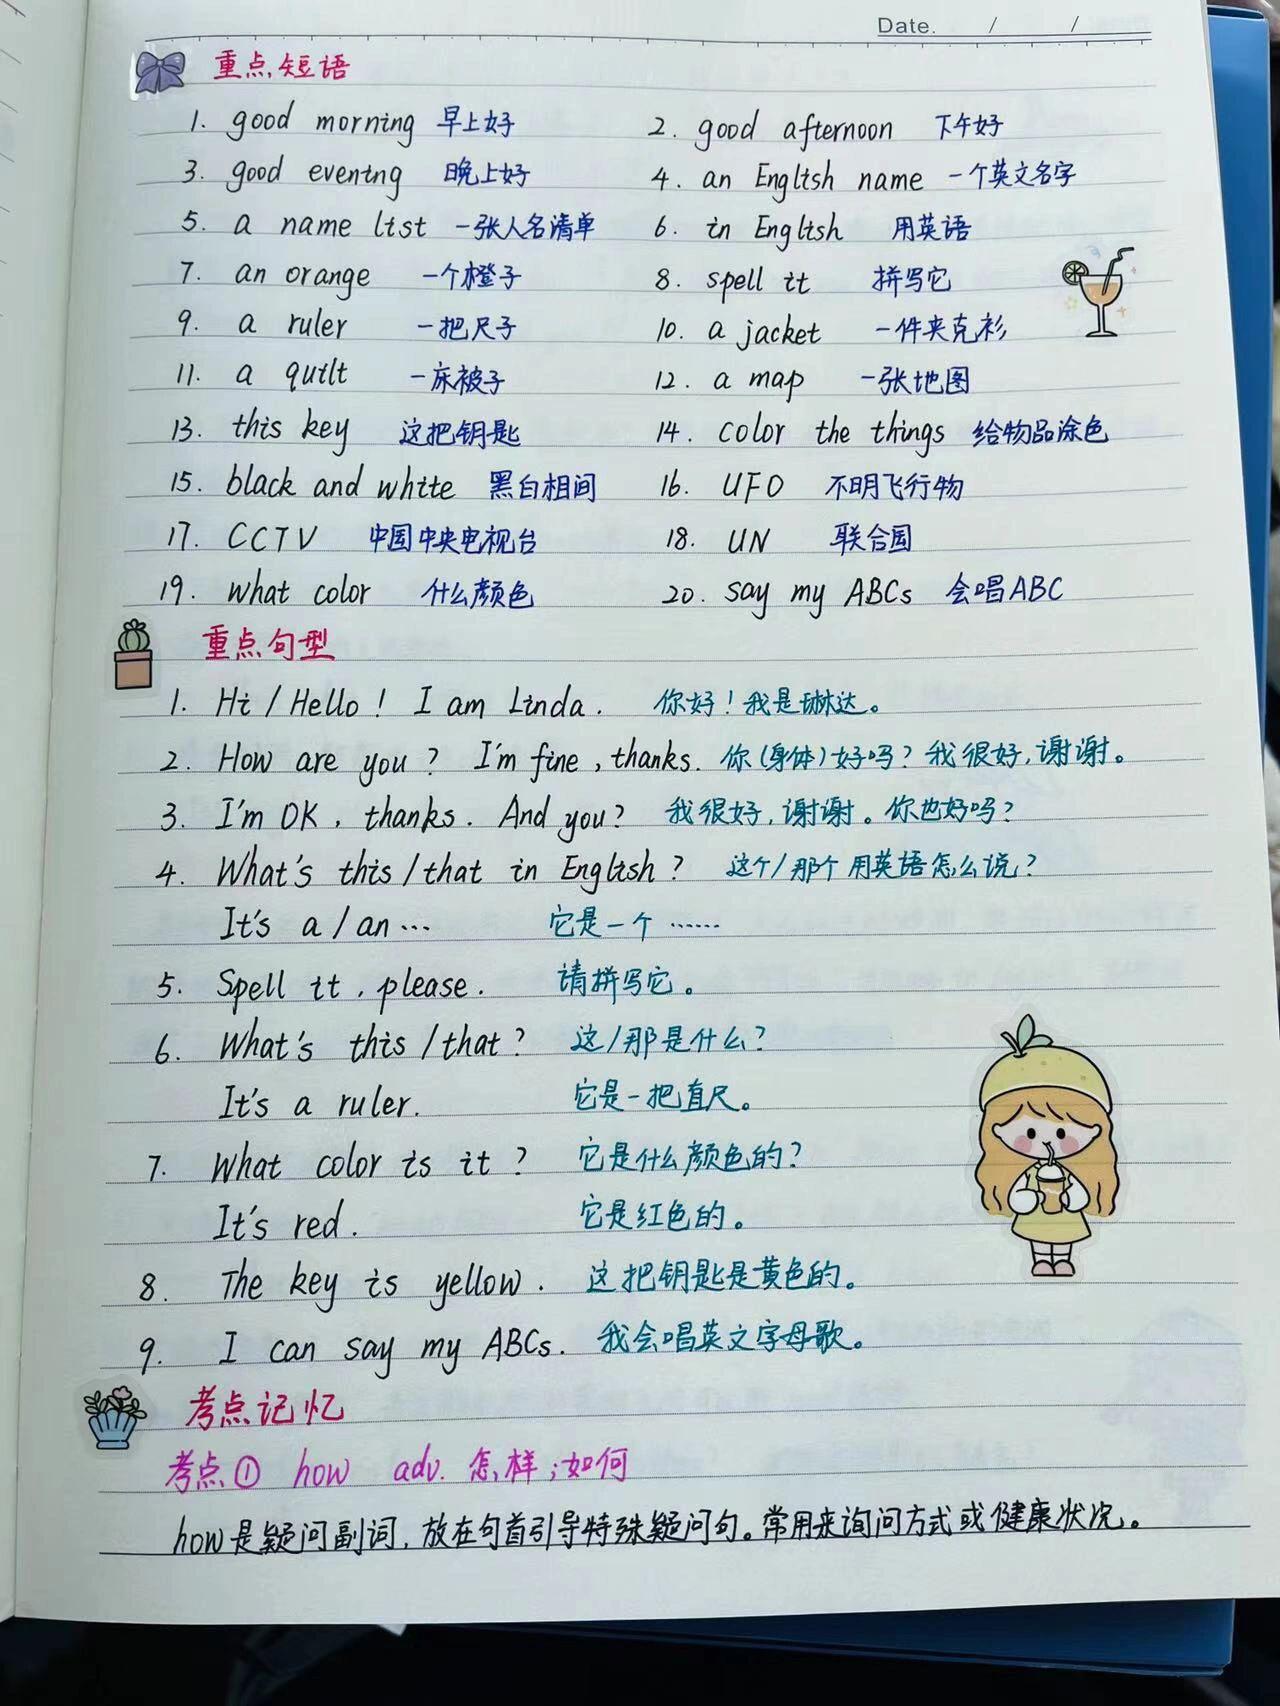 Date. / /
重点短语
1. good morning 早上好 2. good afternoon 下午好
3. good evening 晚上好 4. an English name 一个英文名字
5. a name list 一张人名清单 6. in English 用英语
7. an orange 一个橙子 8. spell it 拼写它
9. a ruler 一把尺子 10. a jacket 一件夹克衫
11. a quilt 一床被子 12. a map 一张地图
13. this key 这把钥匙 14. color the things 给物品涂色
15. black and white 黑白相间 16. UFO 不明飞行物
17. CCTV 中国中央电视台 18. UN 联合国
19. what color 什么颜色 20. say my ABCs 会唱ABC
重点句型
1. Hi / Hello! I am Linda. 你好！我是琳达。
2. How are you? I'm fine, thanks. 你(身体)好吗？我很好,谢谢。
3. I'm OK, thanks. And you? 我很好,谢谢。你也好吗？
4. What's this / that in English? 这个/那个用英语怎么说？
It's a / an … 它是一个 ……
5. Spell it, please. 请拼写它。
6. What's this / that? 这/那是什么？
It's a ruler. 它是一把直尺。
7. What color is it? 它是什么颜色的？
It's red. 它是红色的。
8. The key is yellow. 这把钥匙是黄色的。
9. I can say my ABCs. 我会唱英文字母歌。
考点记忆
考点① how adv. 怎样;如何
how是疑问副词,放在句首引导特殊疑问句。常用来询问方式或健康状况。